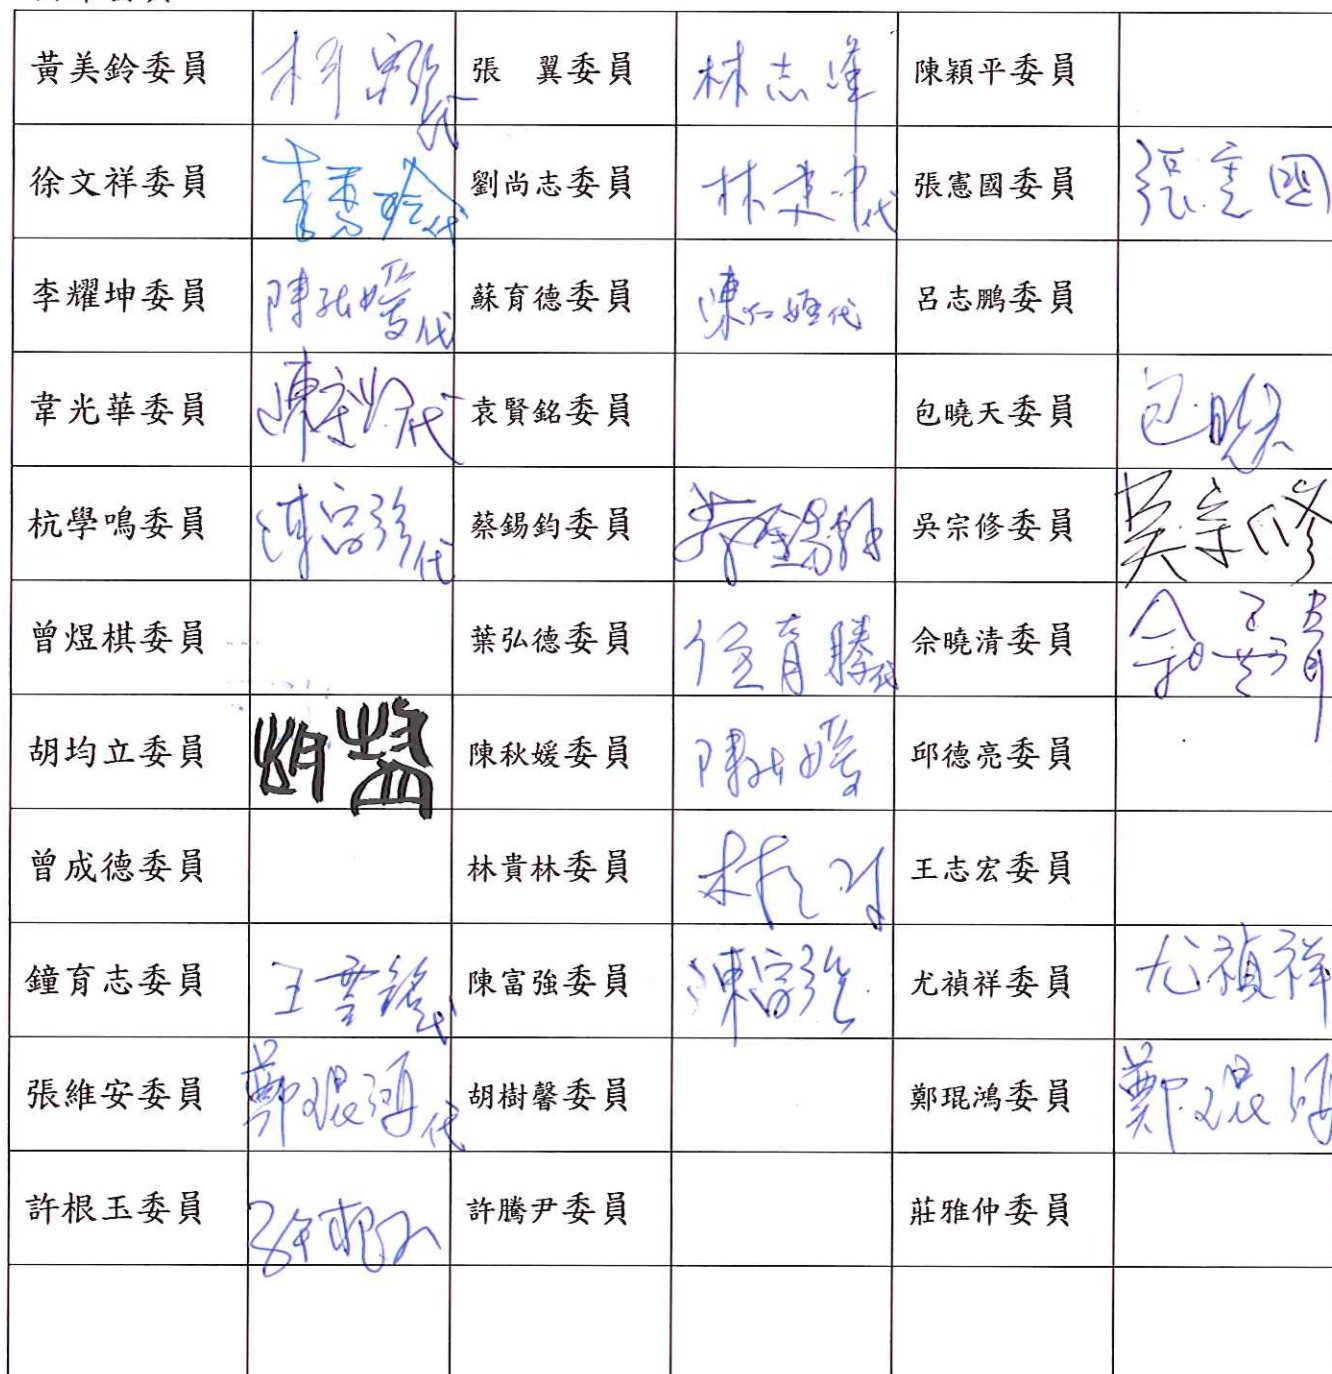 黃美鈴委員 張 翼委員 林志 陳穎平委員
徐文祥委員 代 劉尚志委員 林建中代 張憲國委員 張憲國
李耀坤委員 陳秋媛代 蘇育德委員 陳仁姮代 呂志鵬委員
韋光華委員 陳 代 袁賢銘委員 包曉天委員 包曉天
杭學鳴委員 陳富強代 蔡錫鈞委員 蔡錫鈞 吳宗修委員 吳宗修
曾煜棋委員 葉弘德委員 任育騰代 佘曉清委員
胡均立委員 陳秋媛委員 陳秋媛 邱德亮委員
曾成德委員 林貴林委員 林 王志宏委員
鐘育志委員 王雲銘代 陳富強委員 陳富強 尤禎祥委員 尤禎祥
張維安委員 鄭琨鴻代 胡樹馨委員 鄭琨鴻委員 鄭琨鴻
許根玉委員 許根玉 許騰尹委員 莊雅仲委員